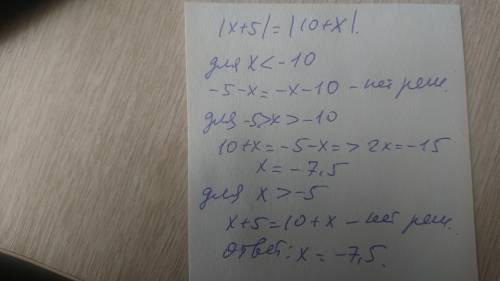 |x+5| = |10+x|.
для x < -10
-5-x = -x-10 - нет реш.
для -5>x>-10
10+x = -5-x => 2x = -15
x = -7,5
для x > -5
x+5 = 10+x - нет реш.
Ответ: x = -7,5.